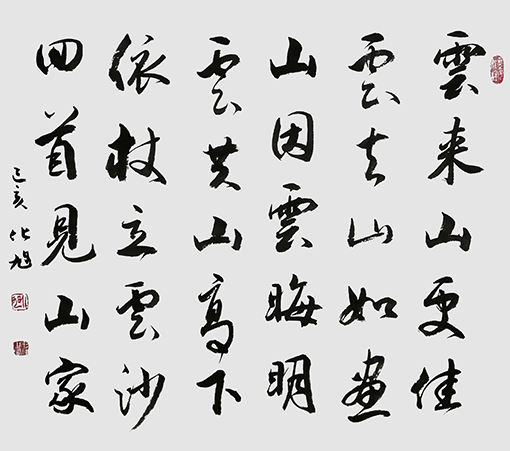 雲来山更佳
雲去山如畫
山因雲晦明
雲共山高下
依杖立雲沙
回首見山家
己亥